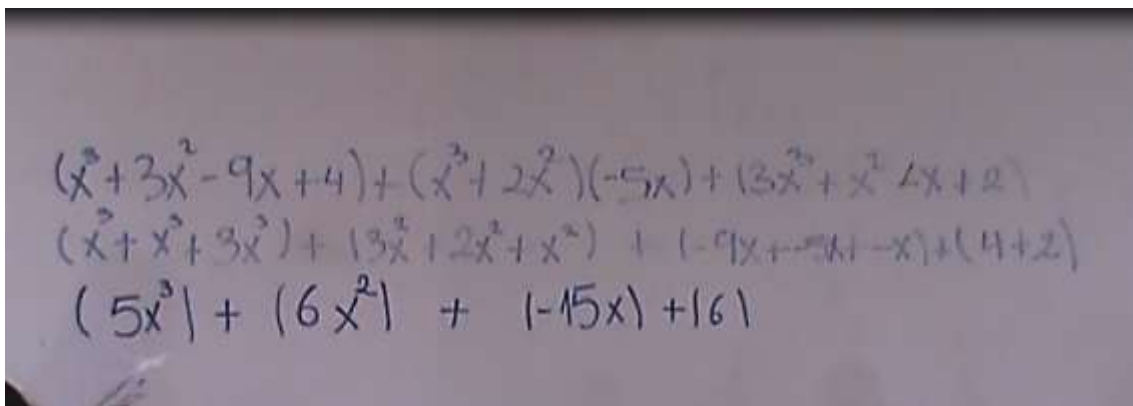 (x³+3x²-9x+4)+(x³+2x²)(-5x)+(3x³+x²-x+2)
(x³+x³+3x³)+(3x²+2x²+x²) + (-9x+-5x+-x)+(4+2)
(5x³)+(6x²) + (-15x)+(6)